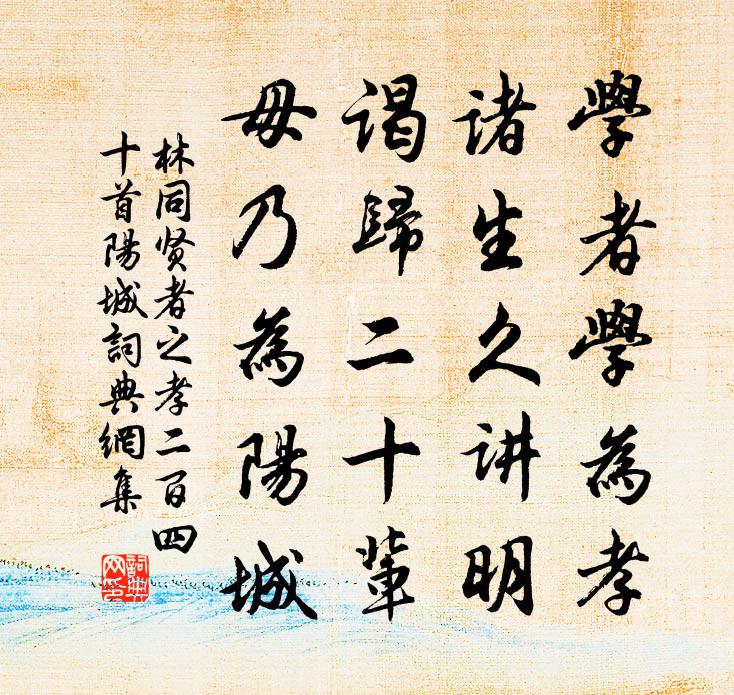 學者學為孝
诸生久讲明
谒歸二十輩
毋乃為陽城
林同贤者之孝二百四
十首陽城詞典網集
詞典